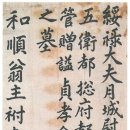 綏祿大夫月城尉
五衛都摠府都
管贈謚貞孝
之墓
和順翁主祔